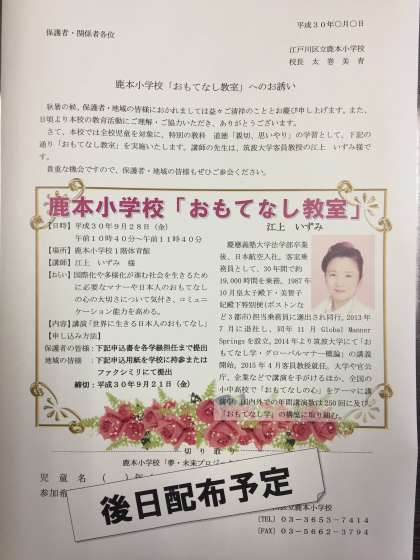 平成３０年〇月〇日
保護者・関係者各位
江戸川区立鹿本小学校
校長 太巻美青
鹿本小学校「おもてなし教室」へのお誘い
秋暑の候、保護者・地域の皆様におかれましては益々ご清祥のこととお慶び申し上げます。また、
日頃より本校の教育活動にご理解・ご協力いただき、ありがとうございます。
さて、本校では全校児童を対象に、特別の教科 道徳「親切、思いやり」の学習として、下記の
通り「おもてなし教室」を実施いたします。講師の先生は、筑波大学客員教授の江上 いずみ様で
す。
貴重な機会ですので、保護者・地域の皆様もぜひご参会ください。
鹿本小学校「おもてなし教室」
【日時】平成３０年９月２８日（金）
午前１０時４０分～午前１１時４０分
【場所】鹿本小学校１階体育館
【講師】江上 いずみ 様
【ねらい】国際化や多様化が進む社会を生きるため
に必要なマナーや日本人のおもてなし
の心の大切さについて気付き、コミュニ
ケーション能力を高める。
【内容】講演「世界に生きる日本人のおもてなし」
【申し込み方法】
保護者の皆様：下記申込書を各学級担任まで提出
地域の皆様 ：下記申込用紙を学校に持参または
ファクシミリにて提出
締切：平成３０年９月２１日（金）
江上 いずみ
慶應義塾大学法学部卒業
後、日本航空入社。客室乗
務員として、30年間で約
19,000時間を乗務。1987年
10月皇太子殿下・美智子
妃殿下特別便(ボストンな
ど3都市)担当乗務員に選出され同行。2013年
7月に退社し、同年11月Global Manner
Springsを設立。2014年より筑波大学にて「お
もてなし学・グローバルマナー概論」の講義
開始、2015年4月客員教授就任。大学や官公
庁、企業などで講演を手がけるほか、全国の
小中高校で「おもてなしの心」をテーマに講
演。国内外での年間講演数は250回に及び、
「おもてなし学」の構築に取り組む。
切り取り
鹿本小学校「夢・未来プロジェ
児童名（ ）年
参加希
後日配布予定
立鹿本小学校
〔TEL〕０３－３６５３－７４１４
０３－５６６２－３７９４